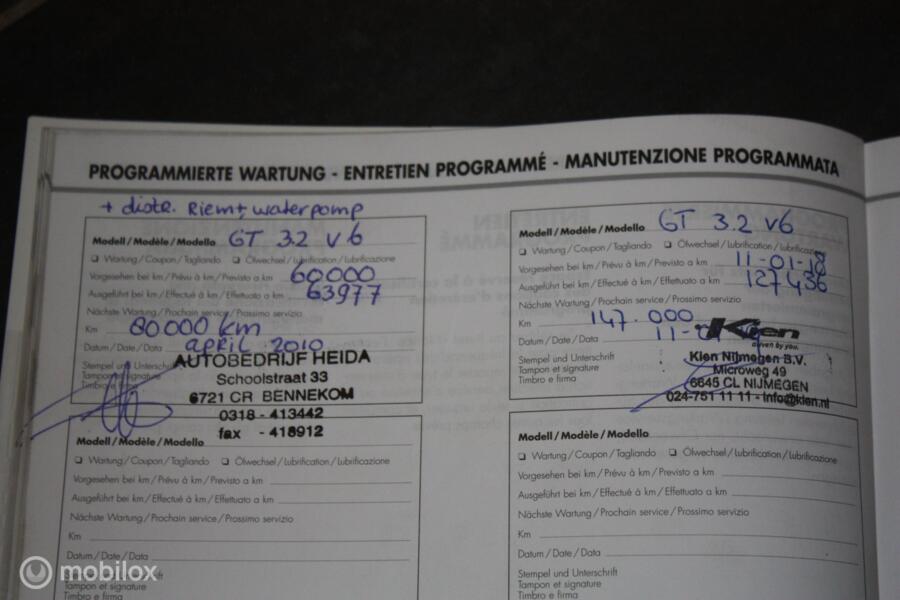 PROGRAMMIERTE WARTUNG - ENTRETIEN PROGRAMMÉ - MANUTENZIONE PROGRAMMATA
+ distr. Riem + waterpomp
Modell/Modèle/Modello GT 3.2 V6
❏ Wartung/Coupon/Tagliando ❏ Ölwechsel/Lubrification/Lubrificazione
Vorgesehen bei km/Prévu à km/Previsto a km 60000
Ausgeführt bei km/Effectué à km/Effettuato a km 63977
Nächste Wartung/Prochain service/Prossimo servizio
Km 80000 km
Datum/Date/Data april 2010
Stempel und Unterschrift
Tampon et signature
Timbro e firma
AUTOBEDRIJF HEIDA
Schoolstraat 33
6721 CR BENNEKOM
0318 - 413442
fax - 418912
Modell/Modèle/Modello GT 3.2 V6
❏ Wartung/Coupon/Tagliando ❏ Ölwechsel/Lubrification/Lubrificazione
Vorgesehen bei km/Prévu à km/Previsto a km 11-01-18
Ausgeführt bei km/Effectué à km/Effettuato a km 127436
Nächste Wartung/Prochain service/Prossimo servizio
Km 147.000
Datum/Date/Data 11-
Stempel und Unterschrift
Tampon et signature
Timbro e firma
Kien
driven by you.
Kien Nijmegen B.V.
Microweg 49
6545 CL NIJMEGEN
024-751 11 11 - info@kien.nl
Modell/Modèle/Modello
❏ Wartung/Coupon/Tagliando ❏ Ölwechsel/Lubrification/Lubrificazione
Vorgesehen bei km/Prévu à km/Previsto a km
Ausgeführt bei km/Effectué à km/Effettuato a km
Nächste Wartung/Prochain service/Prossimo servizio
Km
Datum/Date/Data
Stempel und Unterschrift
Tampon et signature
Timbro e firma
Modell/Modèle/Modello
❏ Wartung/Coupon/Tagliando ❏ Ölwechsel/Lubrification/Lubrificazione
Vorgesehen bei km/Prévu à km/Previsto a km
Ausgeführt bei km/Effectué à km/Effettuato a km
Nächste Wartung/Prochain service/Prossimo servizio
Km
Datum/Date/Data
Stempel und Unterschrift
Tampon et signature
Timbro e firma
mobilox